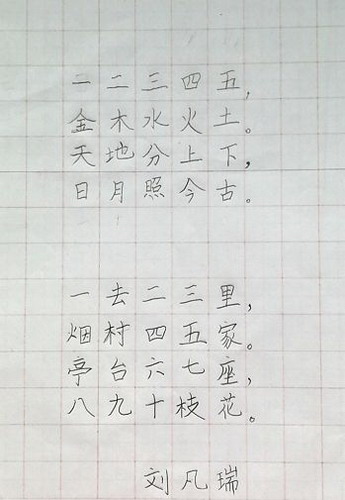 一二三四五,
金木水火土。
天地分上下,
日月照今古。
一去二三里,
烟村四五家。
亭台六七座,
八九十枝花。
刘凡瑞